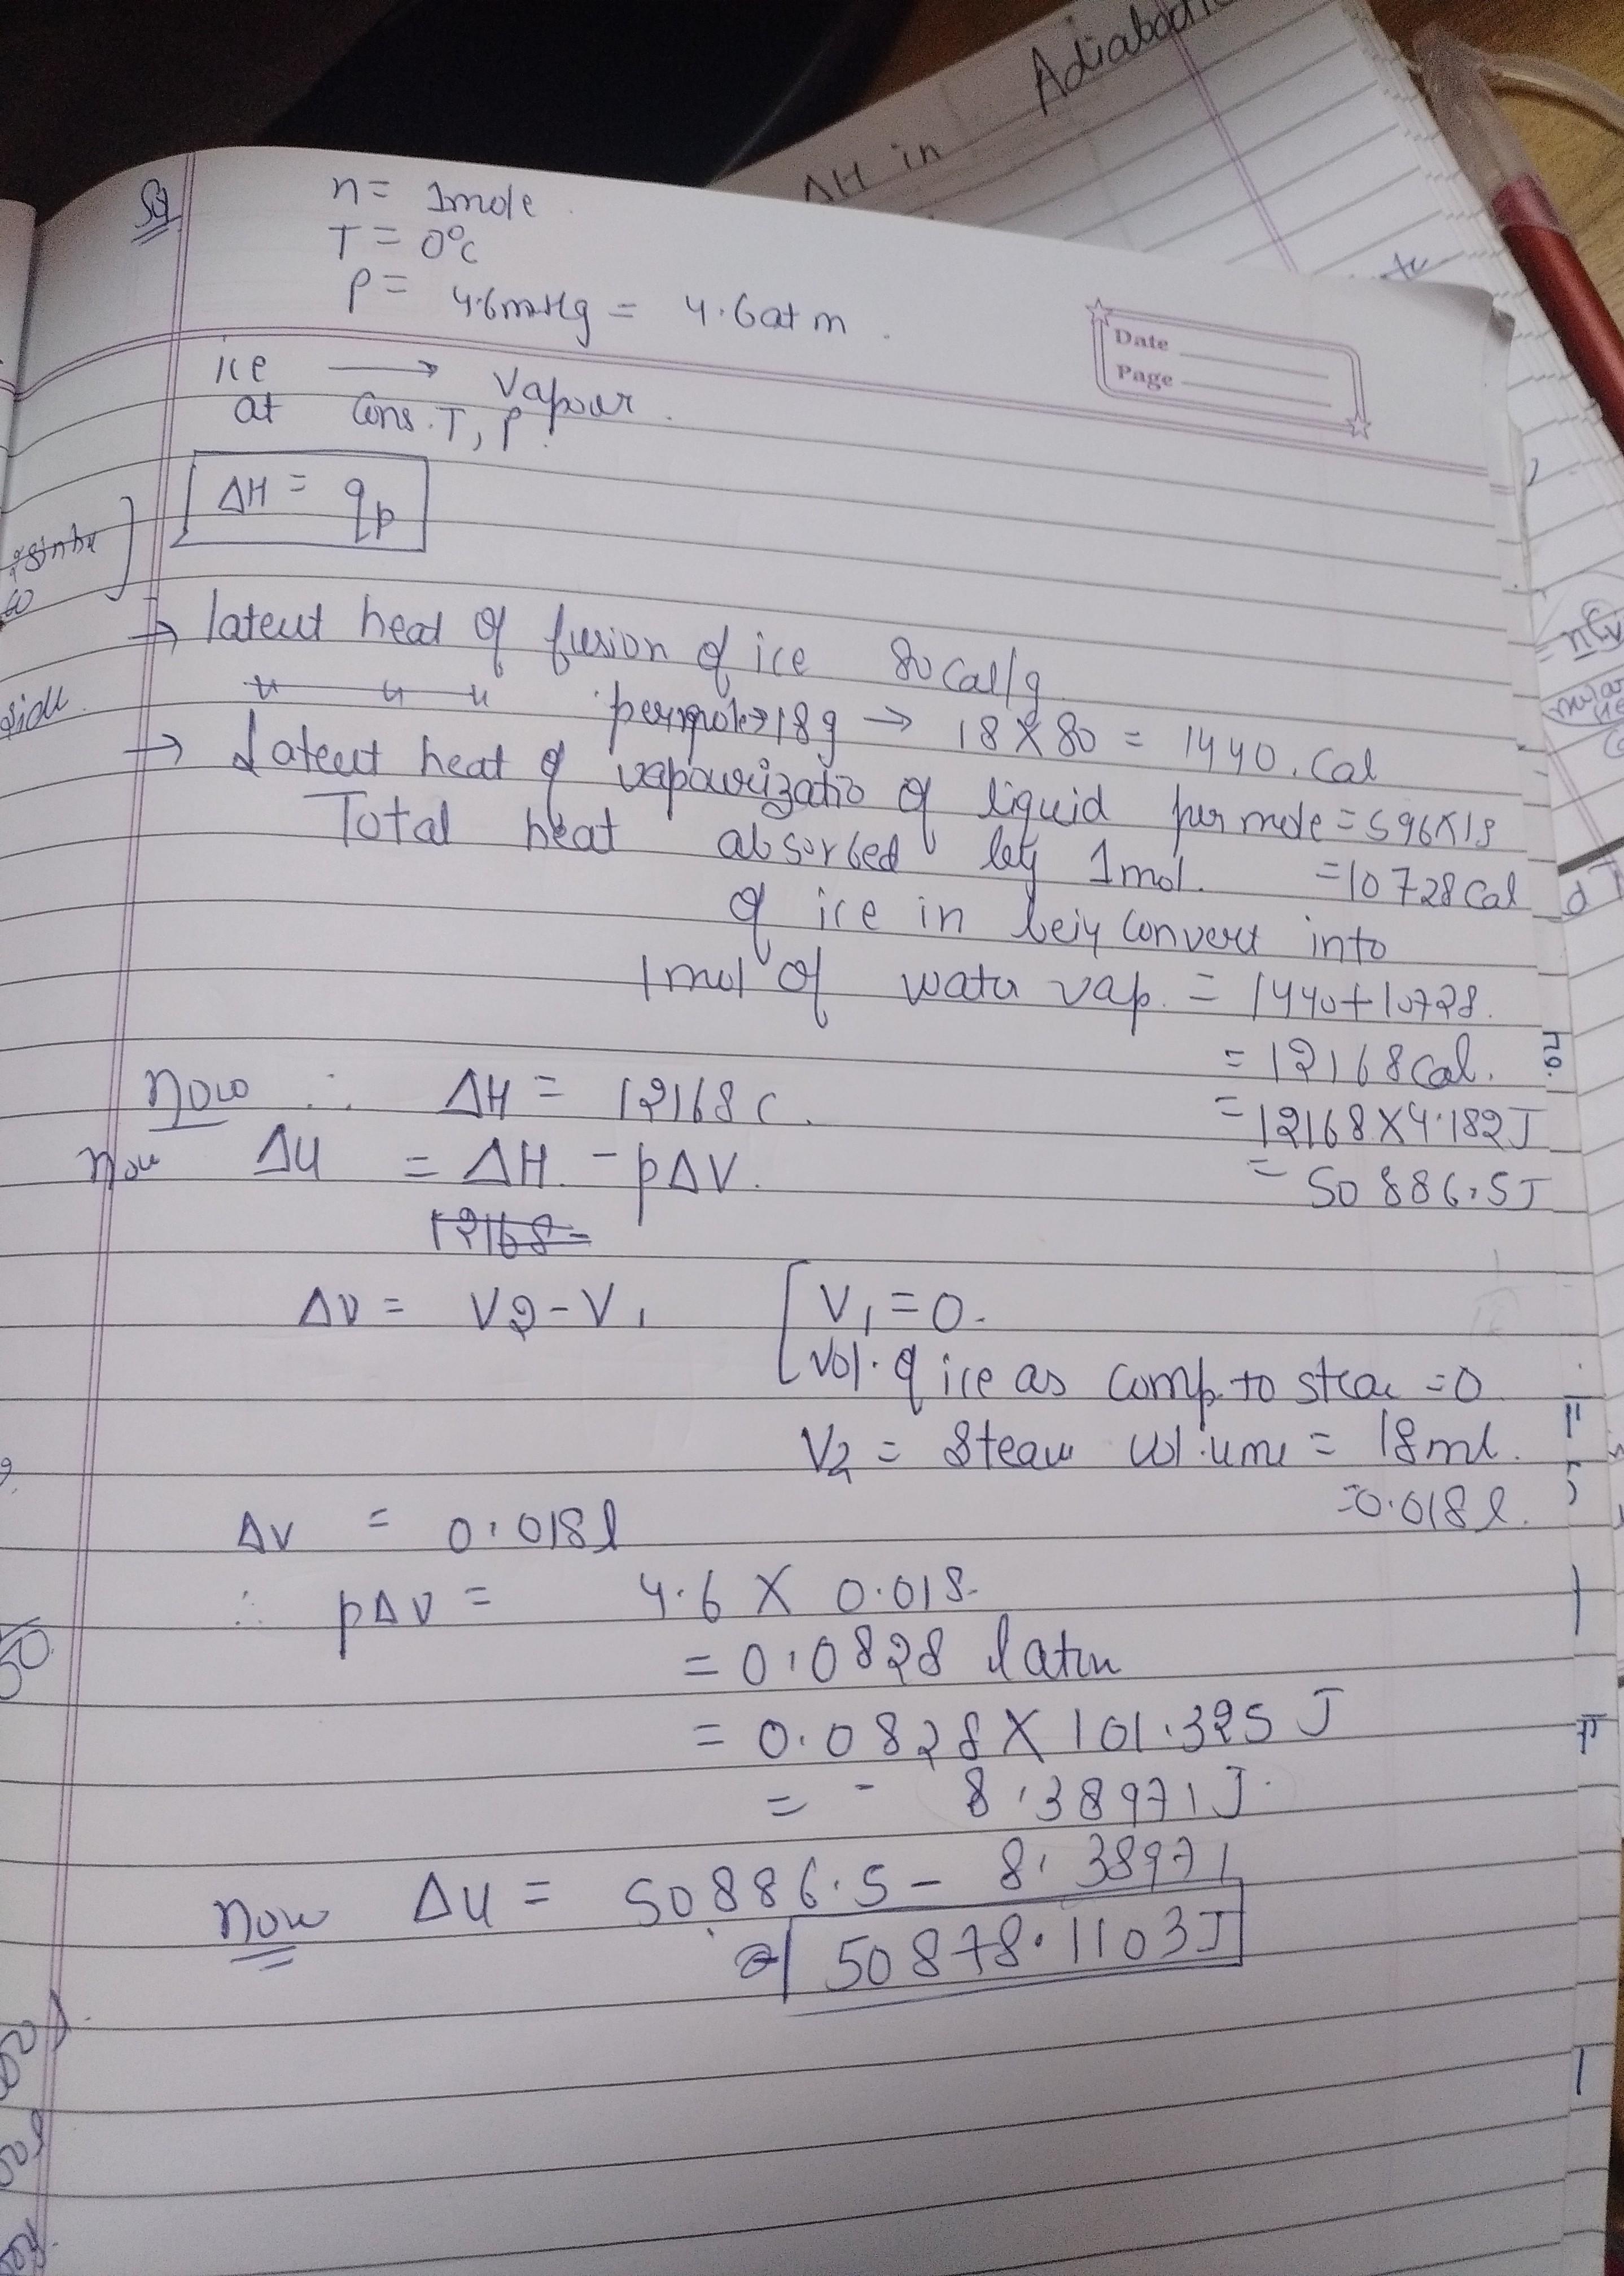 Adiabatic
ΔH in
n = 1mole
T = 0°C
P = 4.6mmHg = 4.6atm.
Date
Page
ice → Vapour.
at Cons. T, P.
ΔH = qp
→ latent heat of fusion of ice 80 Cal/g
" " " per mole → 18g → 18 X 80 = 1440. Cal
→ Latent heat of vapourizatio of liquid per mole = 596X18
= 10728 Cal
Total heat absorbed by 1mol.
of ice in beiy convert into
1mol of wata vap. = 1440+10728.
= 12168 Cal.
= 12168X4.182J
= 50886.5J
Now ∴ ΔH = 12168 C.
Now ΔU = ΔH - pΔV.
12168 =
ΔV = V2 - V1 [V1 = 0.
Vol. of ice as comp. to stea = 0
V2 = Steam volume = 18ml.
= 0.018 l.
ΔV = 0.018 l
∴ pΔV = 4.6 X 0.018
= 0.0828 latm
= 0.0828 X 101.325 J
= - 8.38971J.
Now ΔU = 50886.5 - 8.38971
50878.1103J
side.